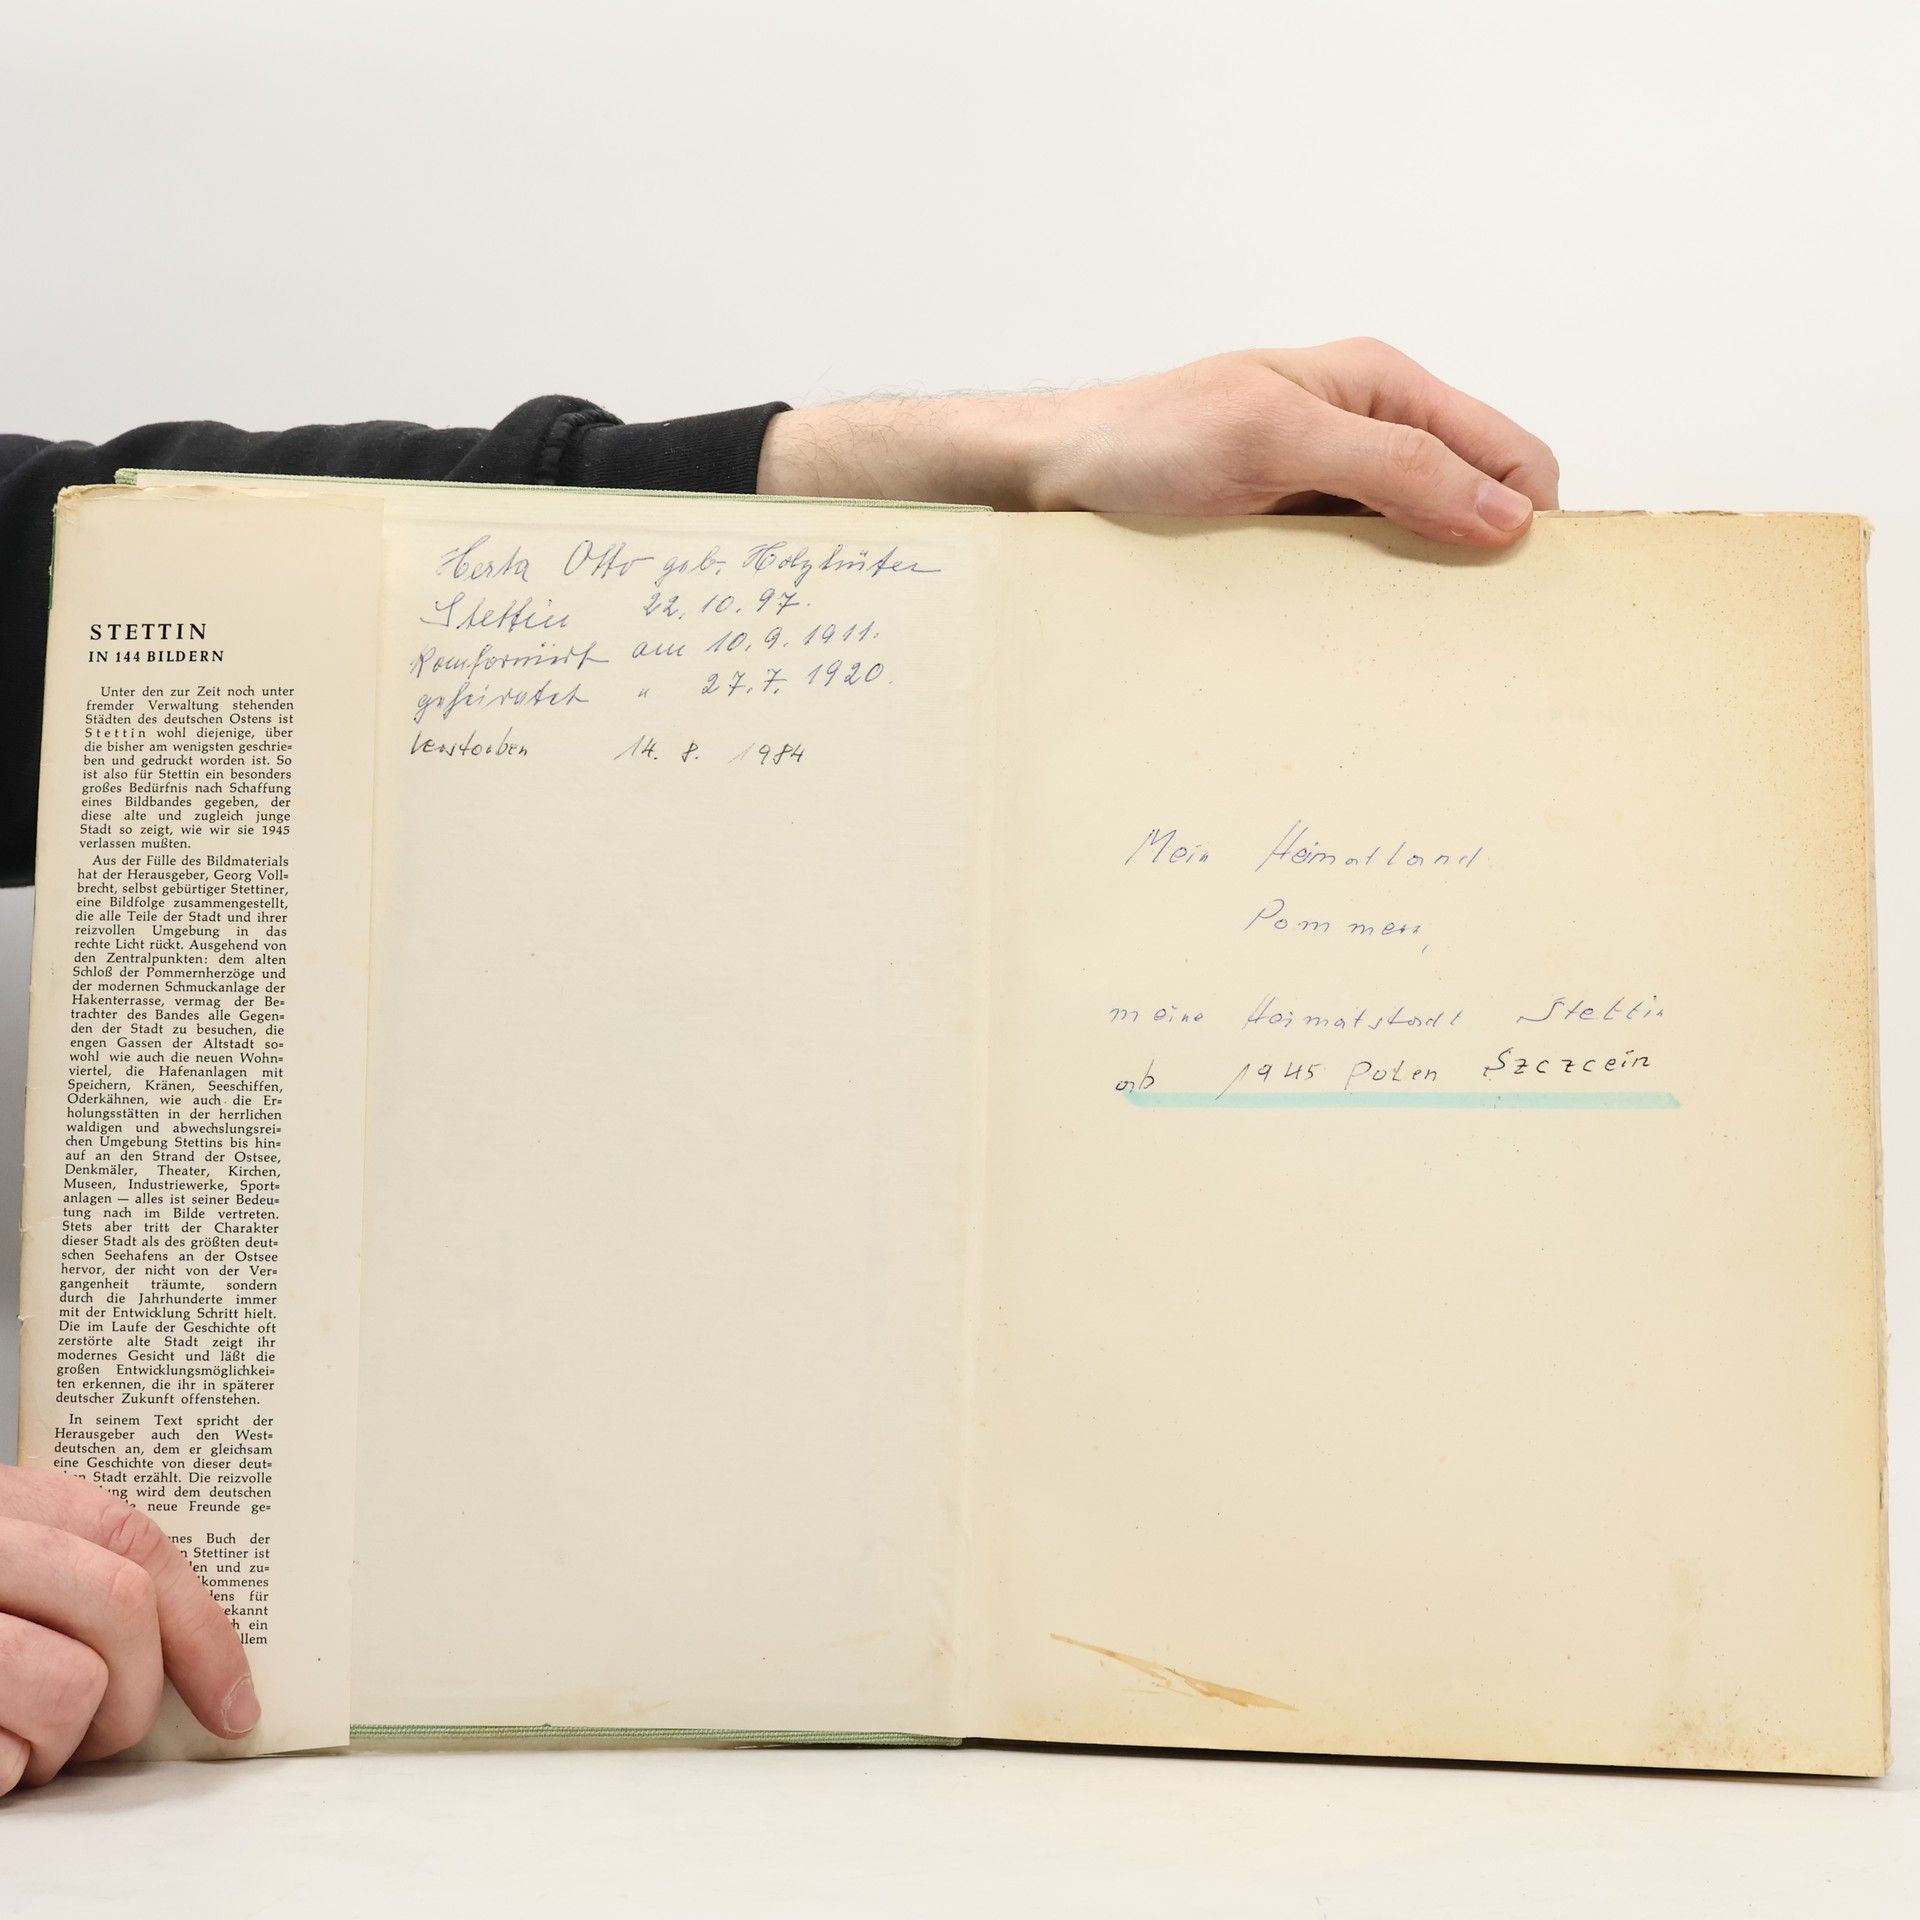 STETTIN
IN 144 BILDERN
Unter den zur Zeit noch unter
fremder Verwaltung stehenden
Städten des deutschen Ostens ist
Stettin wohl diejenige, über
die bisher am wenigsten geschrie=
ben und gedruckt worden ist. So
ist also für Stettin ein besonders
großes Bedürfnis nach Schaffung
eines Bildbandes gegeben, der
diese alte und zugleich junge
Stadt so zeigt, wie wir sie 1945
verlassen mußten.
Aus der Fülle des Bildmaterials
hat der Herausgeber, Georg Voll=
brecht, selbst gebürtiger Stettiner,
eine Bildfolge zusammengestellt,
die alle Teile der Stadt und ihrer
reizvollen Umgebung in das
rechte Licht rückt. Ausgehend von
den Zentralpunkten: dem alten
Schloß der Pommernherzöge und
der modernen Schmuckanlage der
Hakenterrasse, vermag der Be=
trachter des Bandes alle Gegen=
den der Stadt zu besuchen, die
engen Gassen der Altstadt so=
wohl wie auch die neuen Wohn=
viertel, die Hafenanlagen mit
Speichern, Kränen, Seeschiffen,
Oderkähnen, wie auch die Er=
holungsstätten in der herrlichen
waldigen und abwechslungsrei=
chen Umgebung Stettins bis hin=
auf an den Strand der Ostsee,
Denkmäler, Theater, Kirchen,
Museen, Industriewerke, Sport=
anlagen — alles ist seiner Bedeu=
tung nach im Bilde vertreten.
Stets aber tritt der Charakter
dieser Stadt als des größten deut=
schen Seehafens an der Ostsee
hervor, der nicht von der Ver=
gangenheit träumte, sondern
durch die Jahrhunderte immer
mit der Entwicklung Schritt hielt.
Die im Laufe der Geschichte oft
zerstörte alte Stadt zeigt ihr
modernes Gesicht und läßt die
großen Entwicklungsmöglichkei=
ten erkennen, die ihr in späterer
deutscher Zukunft offenstehen.
In seinem Text spricht der
Herausgeber auch den West=
deutschen an, dem er gleichsam
eine Geschichte von dieser deut=
Stadt erzählt. Die reizvolle
wird dem deutschen
neue Freunde ge=
Buch der
Stettiner ist
und zu=
für
ein
Herta Otto geb. Holzhüter
Stettin 22.10.97.
Konfirmiert am 10.9.1911.
geheiratet " 27.7.1920.
Verstorben 14. 8. 1984
Mein Heimatland
Pommern,
meine Heimatstadt Stettin
ab 1945 Polen Szczcein